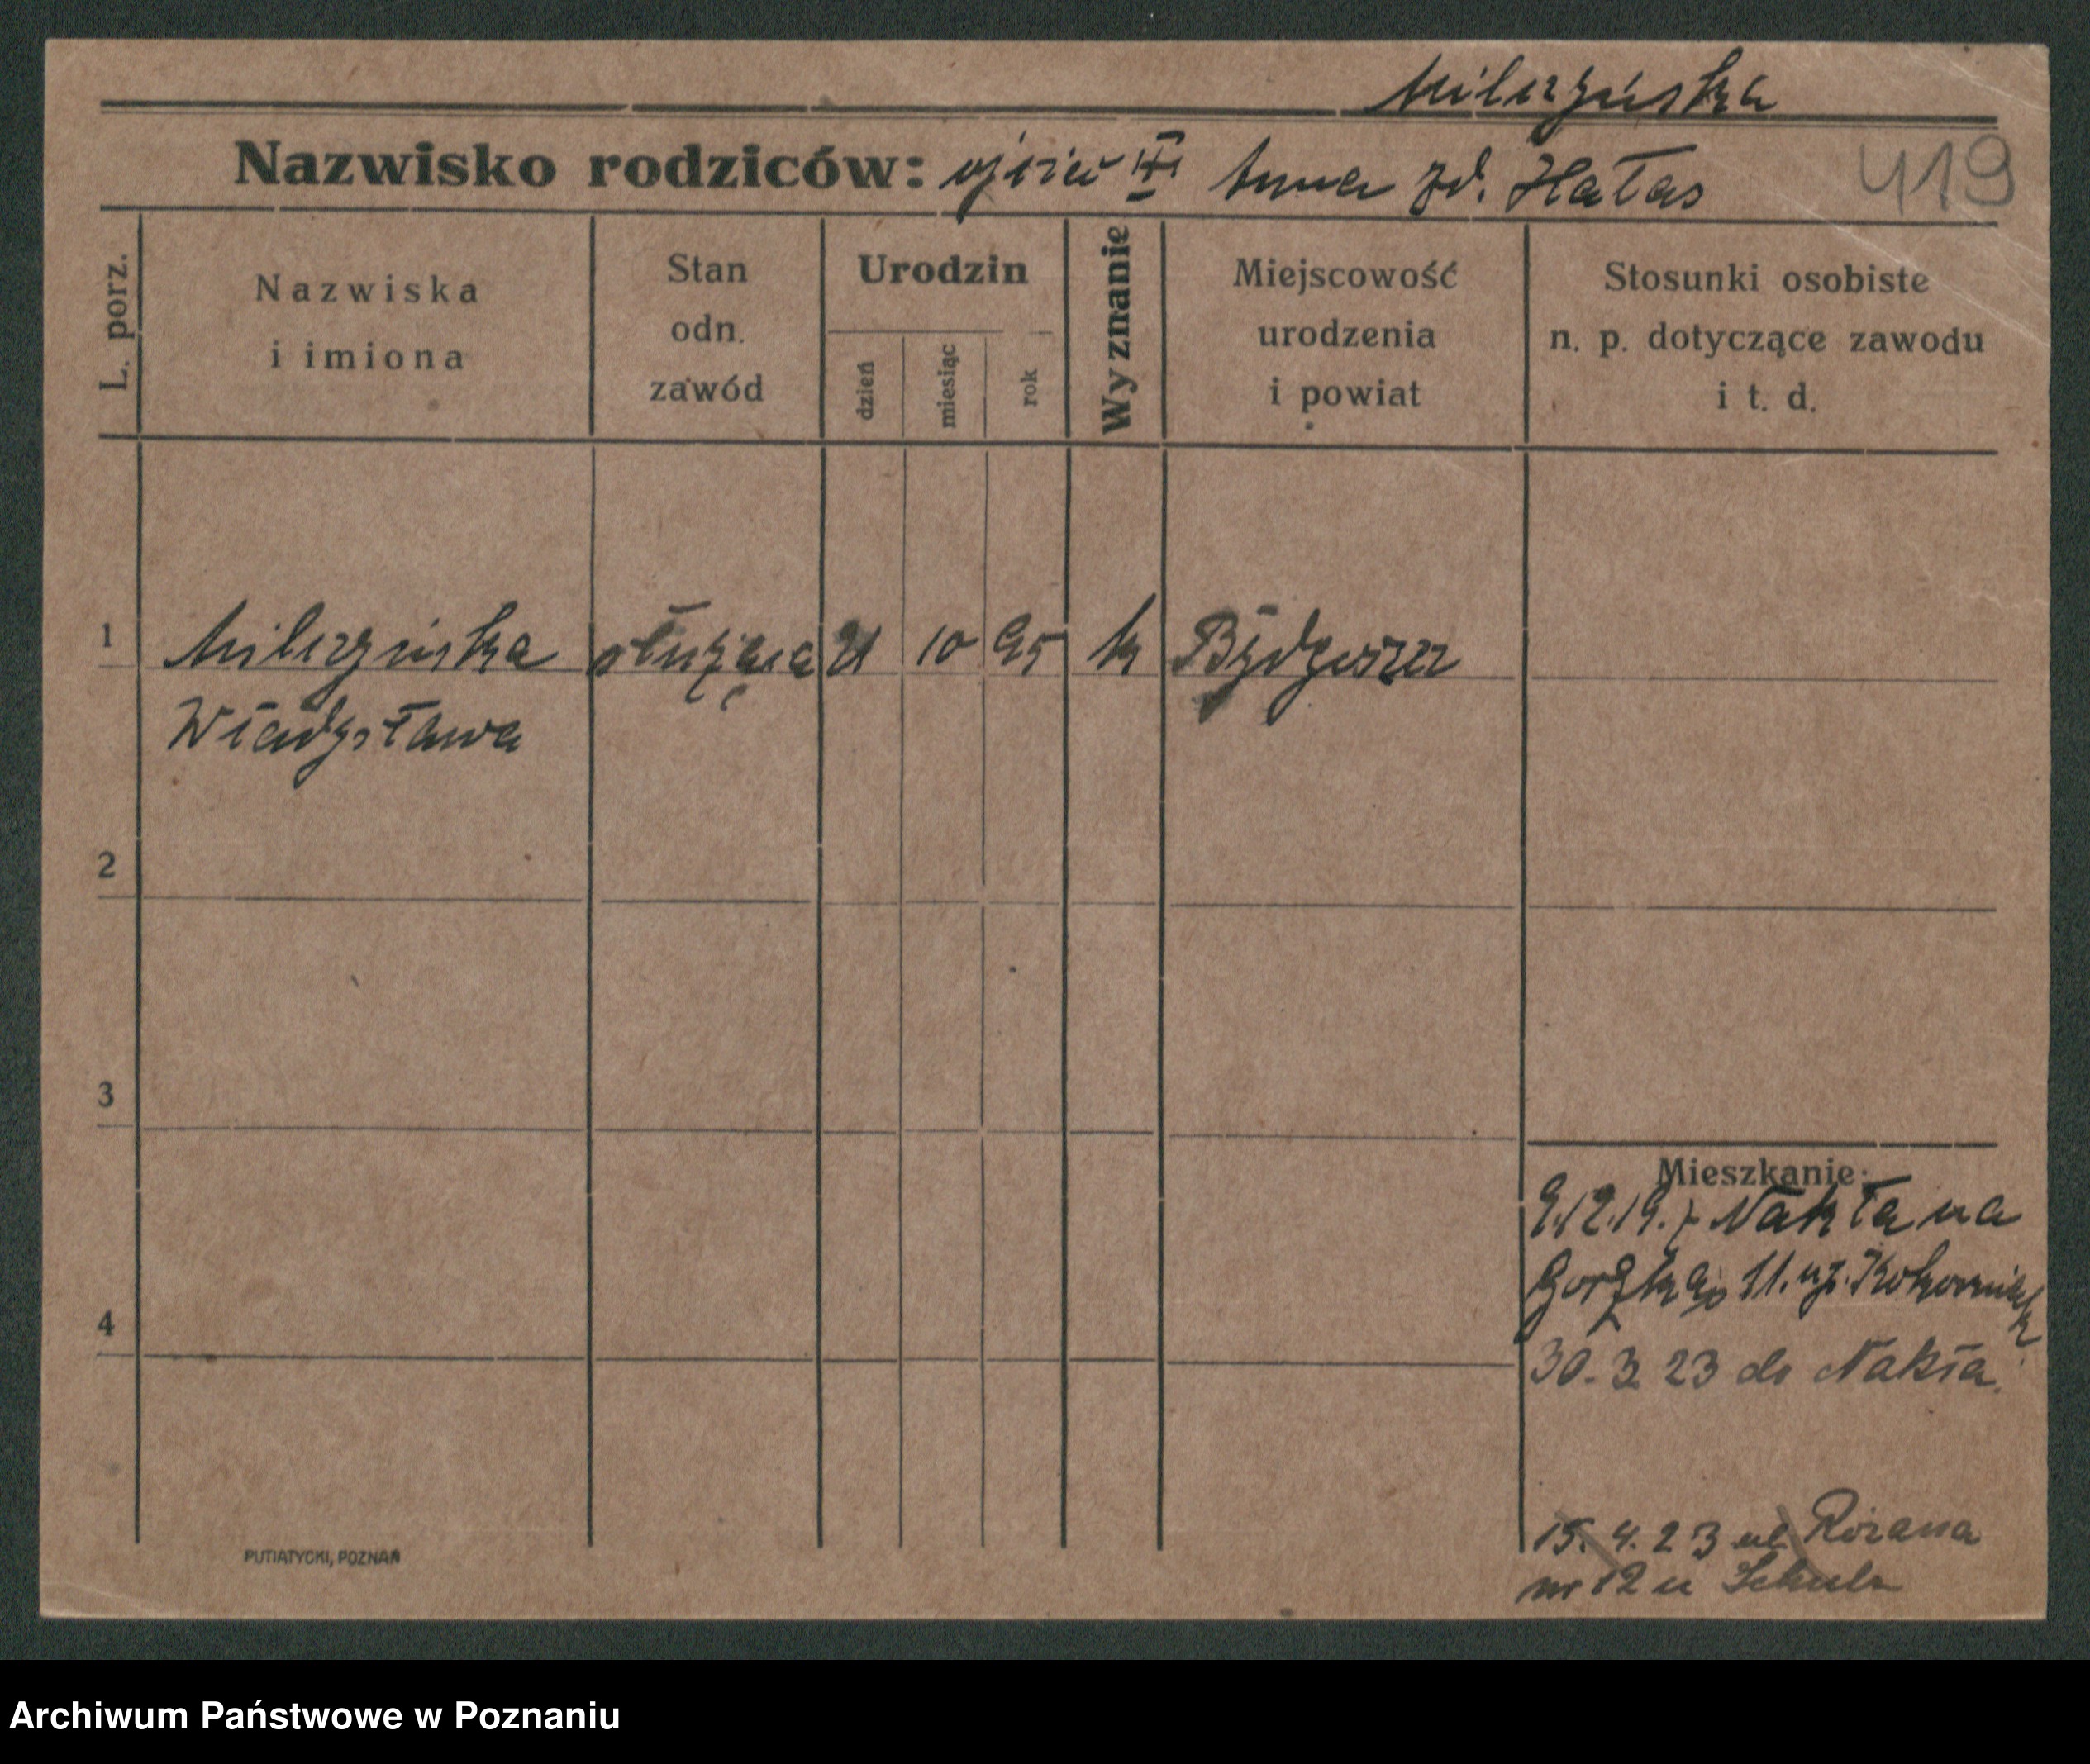 Milczyńska
Nazwisko rodziców: ojciec Anna zd. Hałas
419
L. porz.
Nazwiska
i imiona
Stan
odn.
zawód
Urodzin
dzień
miesiąc
rok
Wyznanie
Miejscowość
urodzenia
i powiat
Stosunki osobiste
n. p. dotyczące zawodu
i t. d.
1 Milczyńska służąca 21 10 95 k Bydgoszcz
Władysława
2
3
4
Mieszkanie:
9.12.19. z Nakła na
11.
30. 3. 23 do Nakła.
15. 4. 23 ul Różana
nr 12 u Schulz
PUTIATYCKI, POZNAŃ
Archiwum Państwowe w Poznaniu